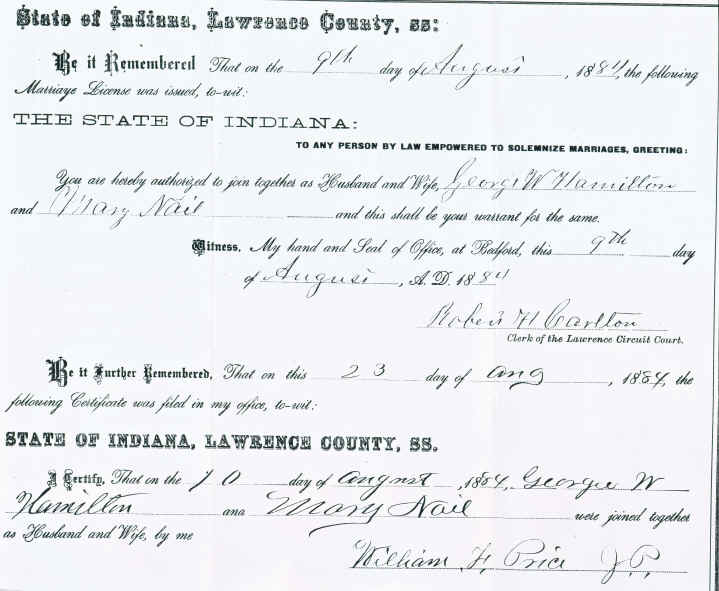 State of Indiana, Lawrence County, ss:
Be it Remembered That on the 9th day of August, 1884, the following
Marriage License was issued, to-wit:
THE STATE OF INDIANA:
TO ANY PERSON BY LAW EMPOWERED TO SOLEMNIZE MARRIAGES, GREETING:
You are hereby authorized to join together as Husband and Wife, George W Hamilton
and Mary Nail and this shall be your warrant for the same.
Witness, My hand and Seal of Office, at Bedford, this 9th day
of August, A.D. 1884
Robert H Carlton
Clerk of the Lawrence Circuit Court.
Be it Further Remembered, That on this 23 day of Aug, 1884, the
following Certificate was filed in my office, to-wit:
STATE OF INDIANA, LAWRENCE COUNTY, SS.
I Certify, That on the 10 day of august, 1884, George W
Hamilton and Mary Nail were joined together
as Husband and Wife, by me
William F. Price J.P.